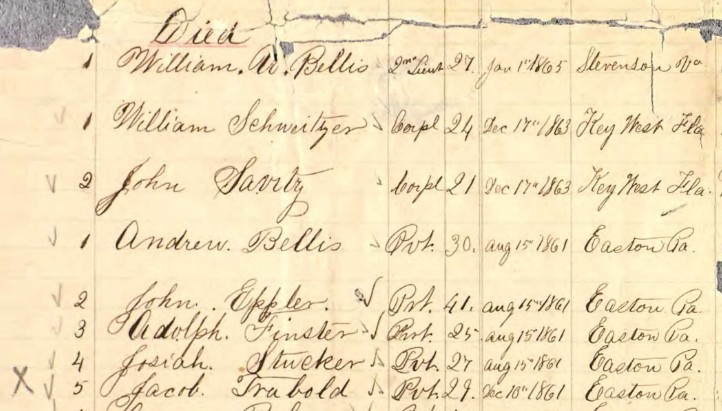 Died
1 William. W. Bellis 2nd Lieut 27. Jan 1st 1865 Stevenson Va
1 William Schweitzer Corpl 24 Dec 17th 1863 Key West Fla
2 John Savitz Corpl 21 Dec 17th 1863 Key West Fla.
1 Andrew. Bellis Pvt. 30. Aug 15th 1861 Easton Pa.
2 John. Eppler. Pvt. 41. Aug 15th 1861 Easton Pa
3 Adolph. Finster Pvt. 25 Aug 15th 1861 Easton Pa.
4 Josiah. Stucker Pvt 27 Aug 15th 1861 Easton Pa.
X 5 Jacob. Trabold Pvt. 29. Dec 10th 1861 Easton Pa.